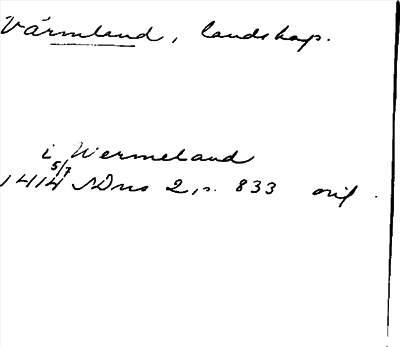 Värmland, landskap.
i Wermeland
5/7
1414 SDns 2, s. 833 orig.